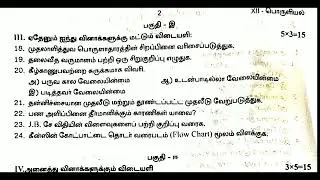 2
XII - பொருளியல்
பகுதி - இ
III. ஏதேனும் ஐந்து வினாக்களுக்கு மட்டும் விடையளி: 5×3=15
18. முதலாளித்துவ பொருளாதாரத்தின் சிறப்பினை வரிசைப்படுத்துக.
19. தலைவீத வருமானம் பற்றி ஒரு சிறுகுறிப்பு எழுதுக.
20. கீழ்காணுபவற்றை சுருக்கமாக விவரி.
அ) பருவ கால வேலையின்மை ஆ) உடன்பாடில்லா வேலையின்மை
இ) படித்தவர் வேலையின்மை
21. தன்னிச்சையான முதலீடு மற்றும் தூண்டப்பட்ட முதலீடு வேறுபடுத்துக.
22. பண அளிப்பினை தீர்மானிக்கும் காரணிகள் யாவை?
23. J.B. சே விதியின் விளைவுகளைப் பற்றி குறிப்பு வரைக.
24. கீன்ஸின் கோட்பாட்டை தொடர் வரைபடம் (Flow Chart) மூலம் விளக்குக.
பகுதி - ஈ
IV. அனைத்து வினாக்களுக்கும் விடையளி 3×5=15